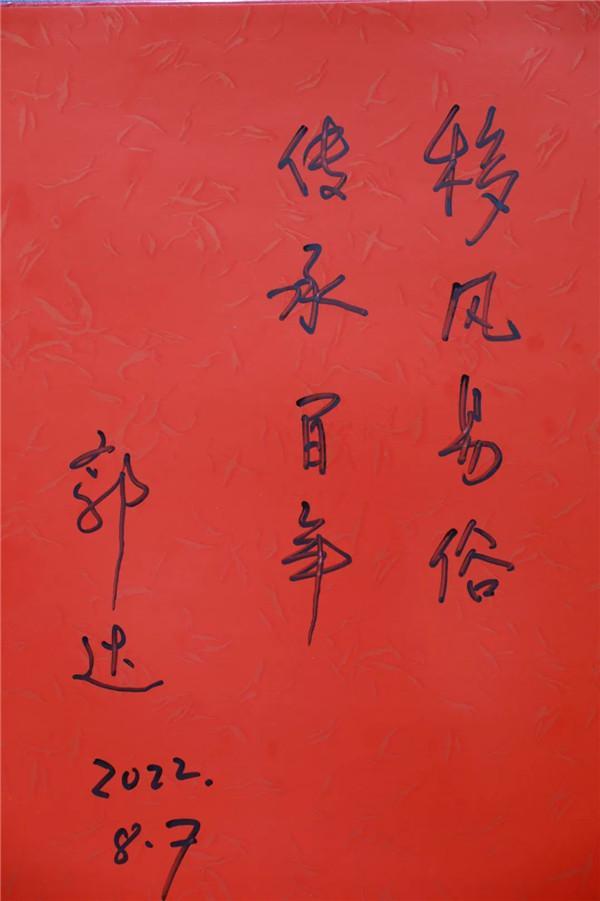 移风易俗
传承百年
郭达
2022.
8.7